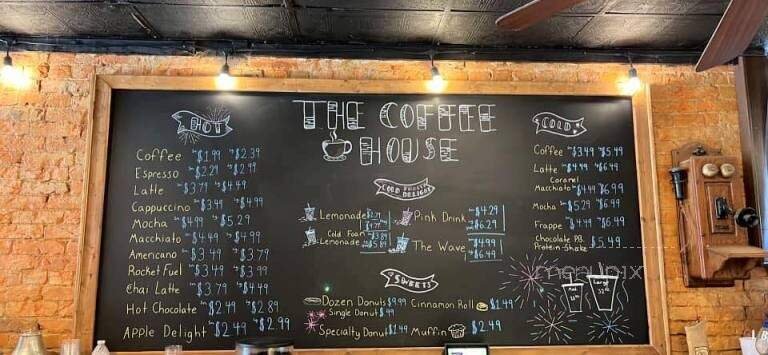 THE COFFEE
HOUSE
HOT
Coffee $1.99 $2.39
Espresso $2.29 $2.99
Latte $3.79 $4.49
Cappuccino $3.99 $4.99
Mocha $4.99 $5.29
Macchiato $4.49 $4.99
Americano $3.49 $3.79
Rocket Fuel $3.49 $3.99
Chai Latte $3.79 $4.49
Hot Chocolate $2.49 $2.89
Apple Delight $2.49 $2.99
COLD FROSTY
DELIGHT
Lemonade
Cold Foam
Lemonade $3.89
$5.89
Pink Drink $4.29
$6.29
The Wave $4.99
$6.49
SWEETS
Dozen Donuts $9.99 Cinnamon Roll $1.49
Single Donut
Specialty Donut $1.49 Muffin $2.49
COLD
Coffee $3.49 $5.49
Latte $4.49 $6.49
Caramel
Macchiato $4.99 $6.99
Mocha $5.29 $6.49
Frappe $4.49 $6.49
Chocolate PB
Protein Shake $5.49
menupix
Large